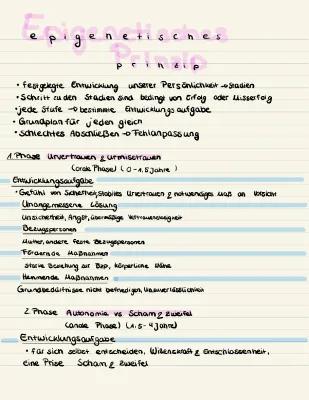 epigenetisches
prinzip
• festgelegte Entwicklung unserer Persönlichkeit → Stadien
• Schritt zu den Stadien sind bedingt von Erfolg oder Misserfolg
• jede Stufe → bestimmte Entwicklungsaufgabe
• Grundplan für jeden gleich
• schlechtes Abschließen → Fehlanpassung
1. Phase Urvertrauen & Urmisstrauen
(orale Phase) (0-1,5 Jahre)
Entwicklungsaufgabe
• Gefühl von Sicherheit, stabiles Urvertrauen & notwendiges Maß an Vorsicht
Unangemessene Lösung
Unsicherheit, Angst, übermäßige Vertrauensseligkeit
Bezugspersonen
Mutter, andere feste Bezugspersonen
Fördernde Maßnahmen
starke Beziehung zur Bzp, körperliche Nähe
Hemmende Maßnahmen
Grundbedürfnisse nicht befriedigen, Unzuverlässlichkeit
2. Phase Autonomie vs Scham & Zweifel
(anale Phase) (1,5-4 Jahre)
Entwicklungsaufgabe
• für sich selbst entscheiden, Willenskraft & Entschlossenheit,
eine Prise Scham & Zweifel